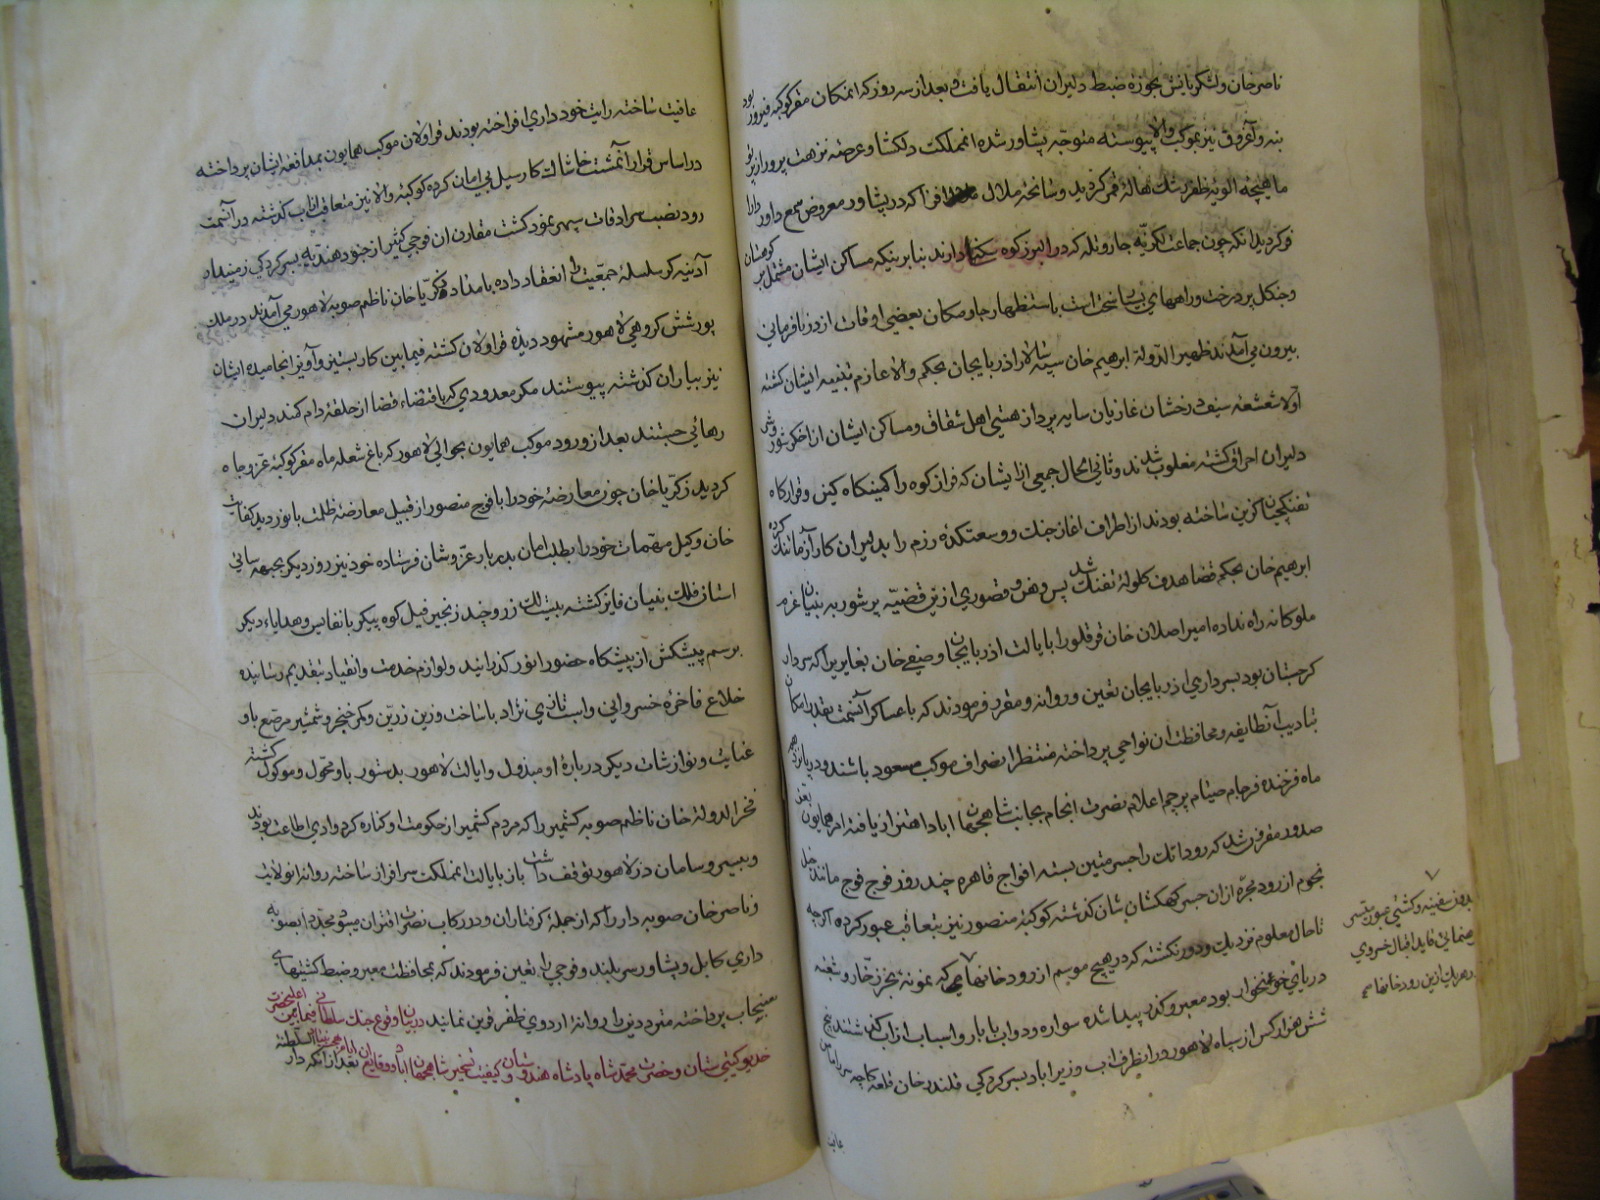 ناصرخان ولشکریانش بحوزهٔ ضبط دلیران انتقال یافت و بعد از سه روز که انمکان مقر کوکبهٔ فیروز بود
بنه و آغروق نیز بموکب والا پیوسته متوجه پشاور شده انمملکت دلکشا و عرصهٔ نزهت پرور از پرتو
ماهیچهٔ الویهٔ ظفر رشک هالهٔ قمر گردید و سانحهٔ ملال افزا که در پشاور معروض سمع داور دارا
فر گردید انکه چون جماعت لکزیه جار وتله که در البرز کوه سکنا دارند بنابر اینکه مساکن ایشان مشتمل بر کوهستان
و جنکل پر درخت و راههای سخت است باستظهار جا و مکان بعضی اوقات از در نافرمانی
بیرون می آمدند ظهیر الدوله ابرهیم خان سپه سالار اذربایجان بحکم والا عازم تنبیه ایشان کشته
اولا شعشعهٔ سیف درخشان غازیان سایه پرداز هستی اهل شقاق و مساکن ایشان از اخکر شور
دلیران احراق کشته مغلوب شدند و ثانی الحال جمعی از ایشان که فراز کوه را کمینکاه کین و قرارکاه
تفنکچیان کزین ساخته بودند از اطراف اغاز جنک و وسعتکدهٔ رزم را بدلیران کارآزما تنک کرده
ابرهیم خان بحکم قضا هدف کلولهٔ تفنک شد پس وهن و قصوری ازین قضیهٔ پر شور به بنیان عزم
ملوکانه راه نداده امیر اصلان خان قرقلو را بایالت اذربایجان و صفی خان بغایری را که سردار
کرجستان بود بسرداری اذربایجان تعیین و روانه و مقرر فرمودند که با عساکر آنسمت بقدر امکان
بتادیب آنطایفه و محافظت ان نواحی پرداخته منتظر انصراف موکب مسعود باشند و در پانزدهم
ماه فرخنده فرجام صیام پرچم اعلام نصرت انجام بجانب شاهجهان اباد اهتزاز یافته امر همایون بعز
صدور مقرون شد که رود اتک را جسر متین بسته افواج قاهره چند روز فوج فوج مانند خیل
نجوم از رود مجره از ان جسر کهکشان نشان کذشته کوکبهٔ منصور نیز بتعاقب عبور کرده اکرچه
تا حال معلوم نزدیک و دور نکشته که در هیچ موسم از رودخانهای که نمونهٔ بحر زخار و شعبهٔ
دریای خونخوار بود معبر و کذر پیدا شده سواره و دواب با بار و اسباب از اب کذشتند پنج
شش هزار کس از سپاه لاهور در انطرف اب وزیر اباد بسرکردکی قلندر خان قلعهٔ کاچه میر را مامن
بدون سفینه و کشتی عبور میسر
رهنمایی قاید اقبال خسروی
از هر یک ازین رودخانها
عافیت
عافیت ساخته رایت خود داری افراخته بودند قراولان موکب همایون بمدافعهٔ ایشان پرداخته
در اساس قرار آنمشت خاشاک کار سیل بی امان کرده کوکبهٔ والا نیز متعاقب از اب کذشته در آنسمت
رود نصب سرادقات سپهر نمود کشت مقارن ان فوجی کثیر از جنود هندیه بسرکردکی زمیندار
آدینه کر سلسلهٔ جمعیت را انعقاد داده بامداد زکریا خان ناظم صوبهٔ لاهور می آمدند در ملک
پور شش کروهی لاهور مشهود دیدهٔ قراولان کشته فیما بین کار بستیز و آویز انجامیده ایشان
نیز بیاران کذشته پیوستند مکر معدودی که باقتضاء قضا از حلقهٔ دام کمند دلیران
رهائی جستند بعد از ورود موکب همایون بحوالی لاهور که باغ شعله ماه مقر کوکبهٔ عز و جاه
کردید زکریا خان چون معارضهٔ خود را با فوج منصور از قبیل معارضهٔ ظلمت با نور دید کفایت
خان وکیل مهمات خود را بطلب امان بدربار عز و شان فرستاده خود نیز روز دیکر بجبهه سائی
استان فلک بنیان فایز کشته بیست لک زر و چند زنجیر فیل کوه پیکر با نفایس و هدایاء دیکر
برسم پیشکش از پیشکاه حضور انور کذرانید و لوازم خدمت و انقیاد بتقدیم رسانیده
خلاع فاخرهٔ خسروانی و اسب تازی نژاد با ساخت و زین زرین و کمر خنجر و شمشیر مرصع باو
عنایت و نوازشات دیکر دربارهٔ او مبذول و ایالت لاهور بدستور باو محول و موکول کشته
فخر الدوله خان ناظم صوبهٔ کشمیر را که مردم کشمیر از حکومت او کناره کرد وادی اطاعت بودند
و بیسر و سامان در لاهور توقف داشت باز بایالت انمملکت سرافراز ساخته روانه انولایت
و ناصر خان صوبه دار را که از جملهٔ کرفتاران و در رکاب نصرت اقتران میبود مجددا بصوبه
داری کابل و پشاور سربلند و فوجی را تعین فرمودند که بمحافظت معبر و ضبط کشتیهای
پنجاب پرداخته مترددین را روانهٔ اردوی ظفر قرین نمایند در بیان وقوع جنک سلطانی فیما بین اعلیحضرت
خدیو کیتی ستان و حضرت محمد شاه پادشاه هندوستان و کیفیت تسخیر شاهجهان اباد و وقایع ان ایام بعد از انکه دار السلطنه